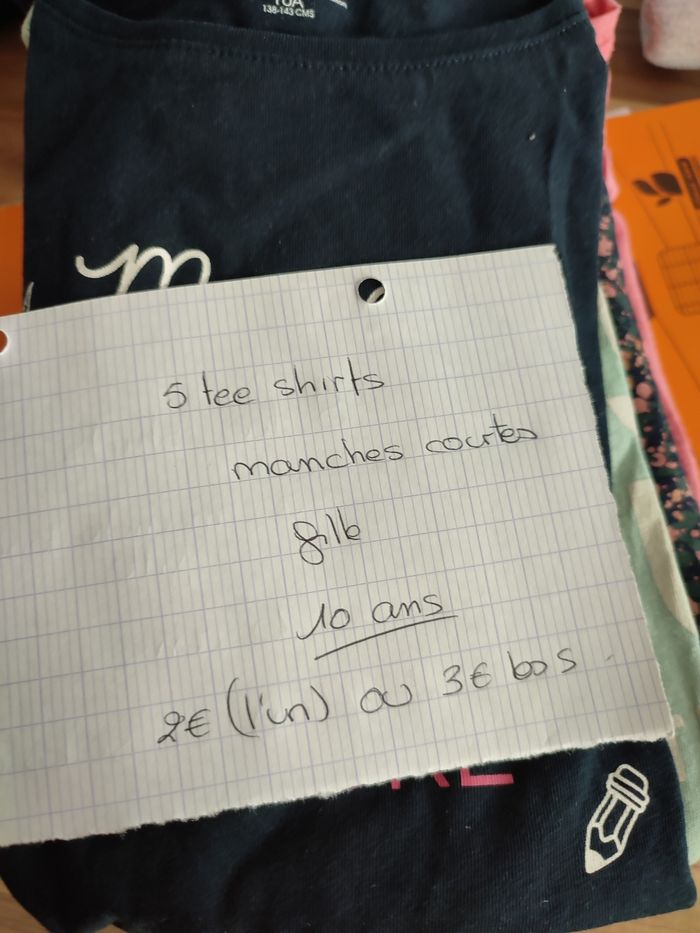 10A
138-143 CMS
m
5 tee shirts
manches courtes
fille
10 ans
2€ (l'un) ou 3€ les 5